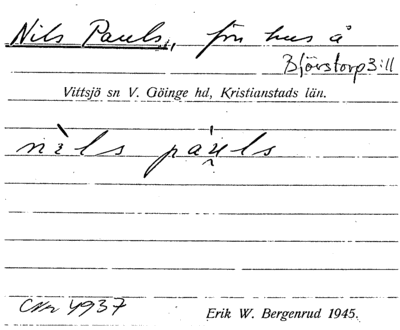 Nils Pauls, förr hus å
Björstorp 3:11
Vittsjö sn V. Göinge hd, Kristianstads län.
nìls pàu̯ls
CNr 4937
Erik W. Bergenrud 1945.